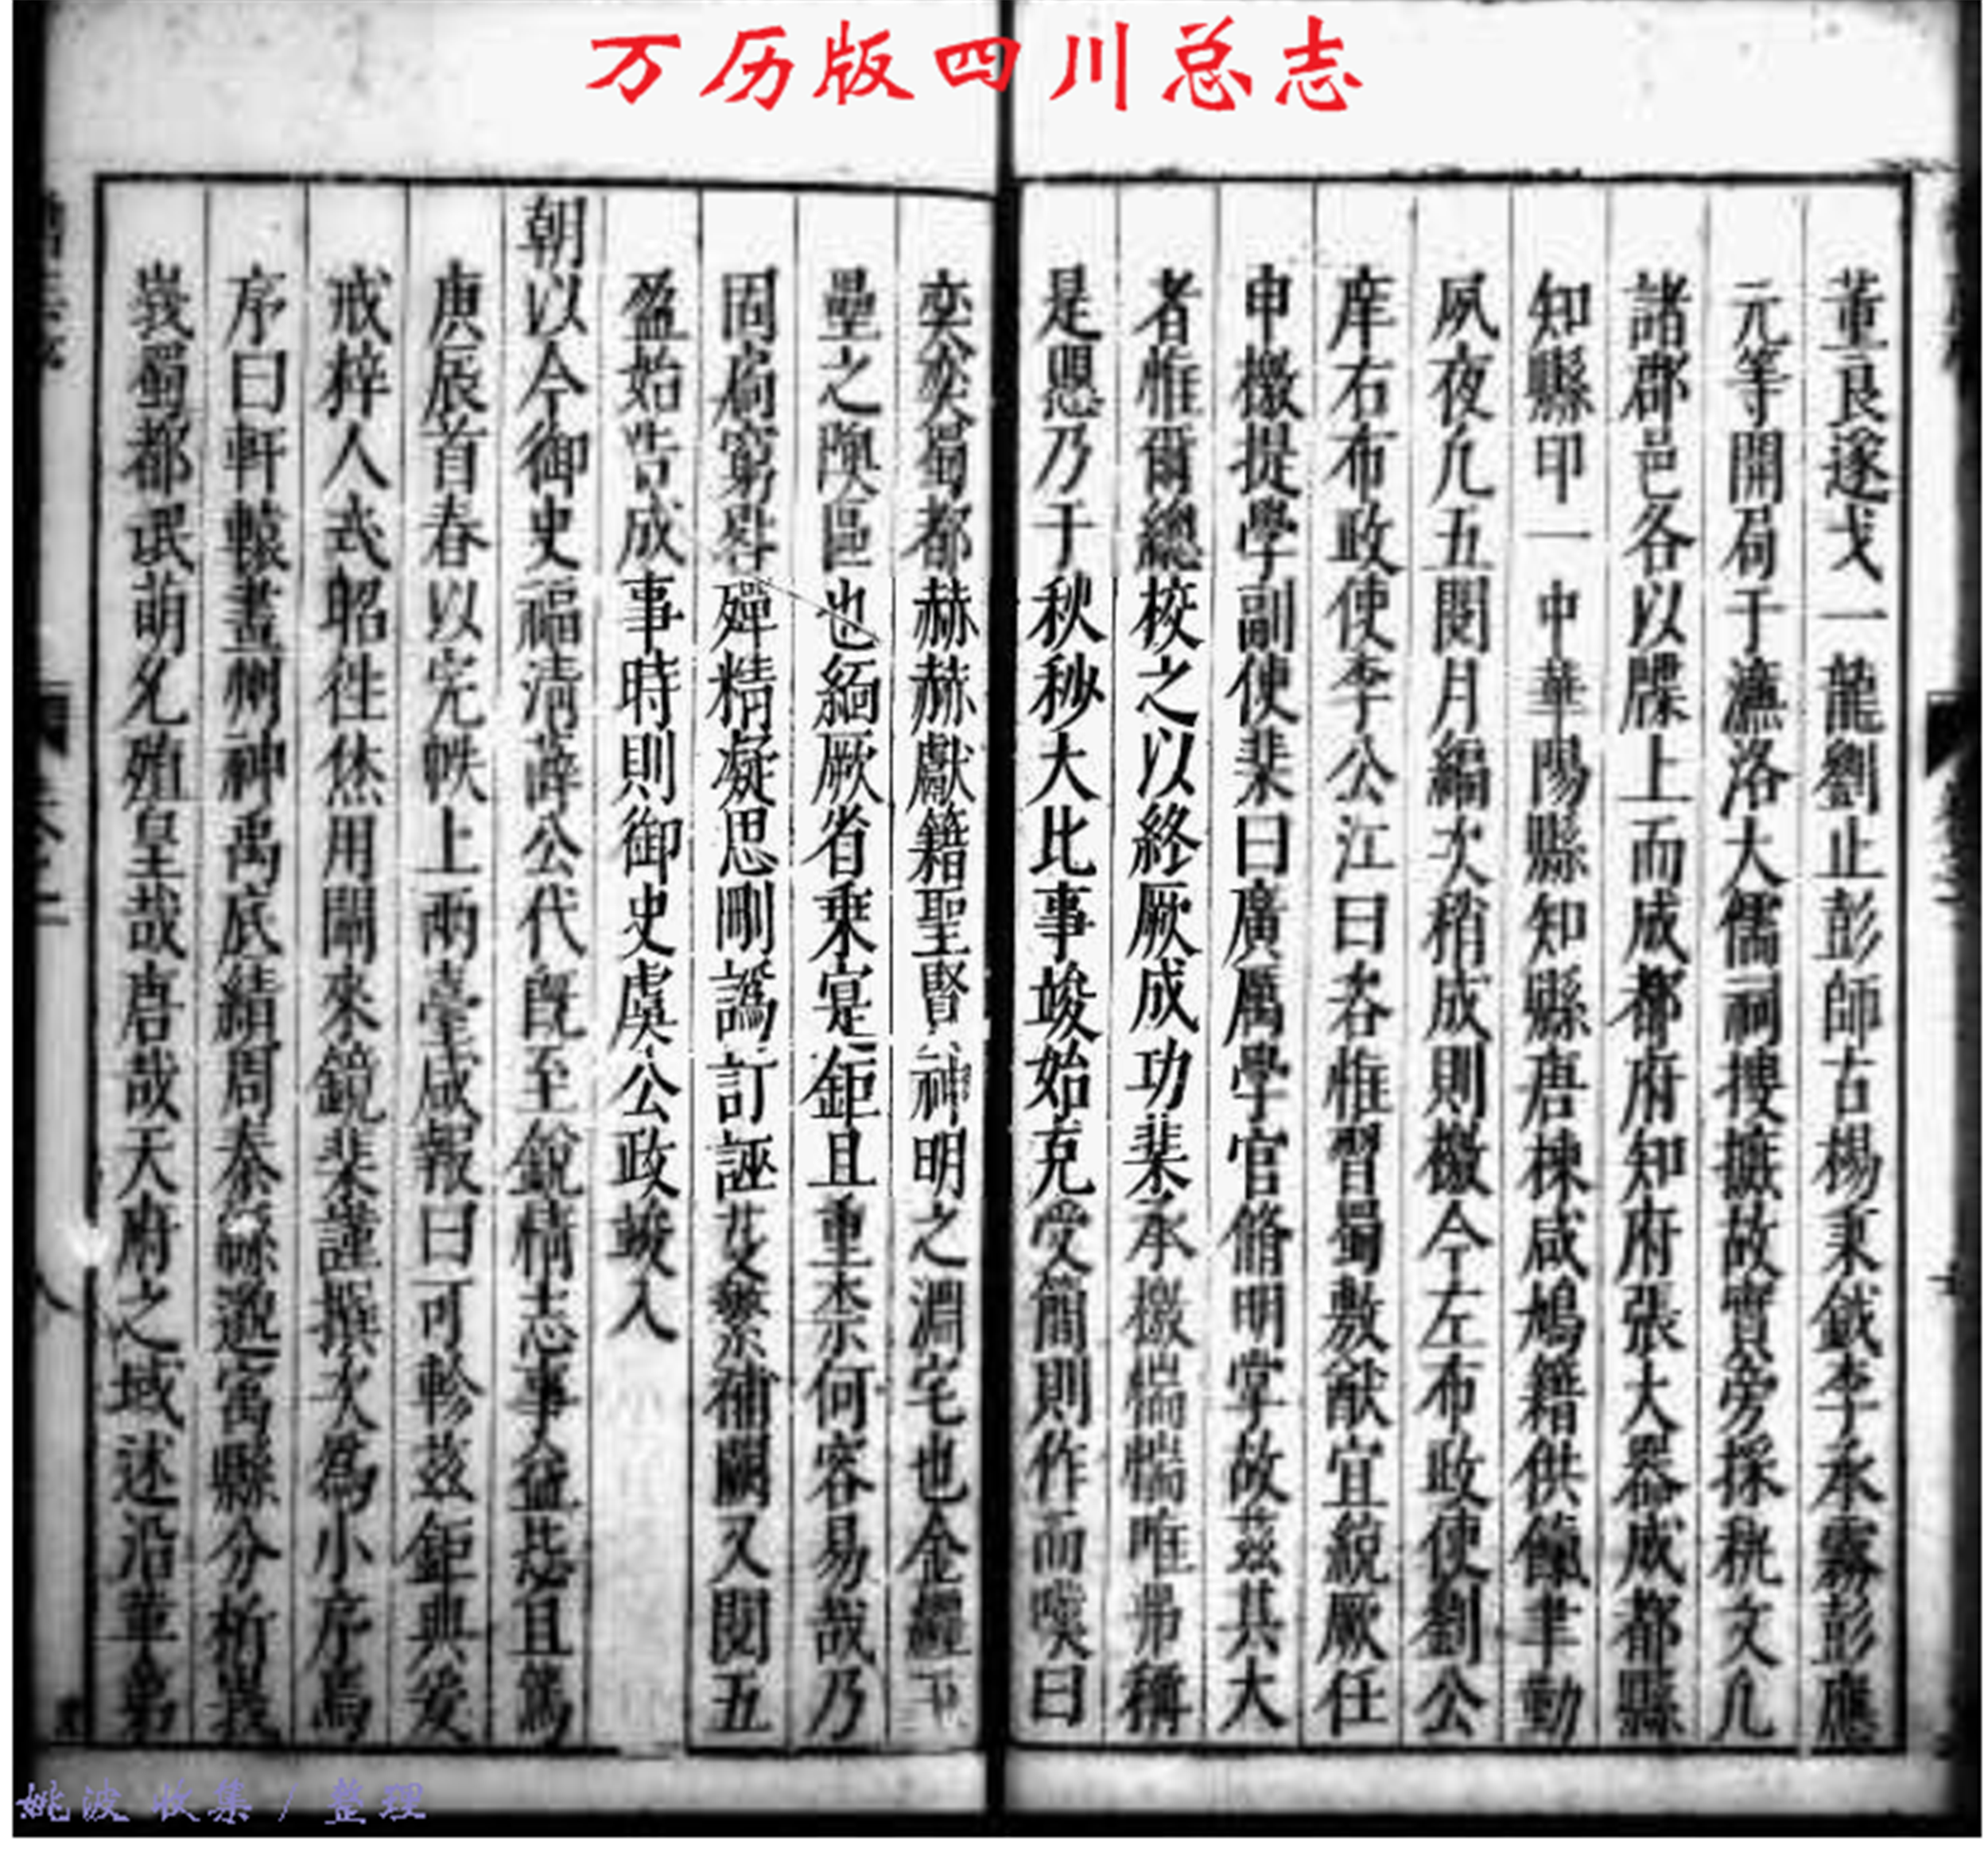 万历版四川总志
董良遂戈一龍劉止彭師古楊秉鉞李承露彭應
元等開局于濂洛大儒祠搜摭故實旁採秇文几
諸郡邑各以牒上而成都府知府張大器成都縣
知縣印一中華陽縣知縣唐棟咸鳩籍供餼聿勤
夙夜几五閱月編次稍成則檄今左布政使劉公
庠右布政使李公江曰咨惟習蜀敷猷宜統厥任
申檄提學副使棐曰廣厲學官脩明掌故茲其大
者惟爾總校之以終厥成功棐承檄惴惴唯弗稱
是愳乃于秋秒大比事竣始克受簡則作而嘆曰
奕奕蜀都赫赫獻籍聖賢神明之淵宅也金
壘之隩區也緬厥省乘寔鉅且重柰何容易哉乃
罔扃窮晷殫精凝思刪譌訂誣芟縏補闕又閱五
盈始告成事時則御史虞公政竣入
朝以今御史福清薛公代旣至銳情志事益毖且篤
庚辰首春以完帙上兩臺咸報曰可軫茲鉅典爰
戒梓人式昭徃烋用開來鏡棐謹撰次爲小序焉
序曰軒轅畫州神禹底績周秦繇邈寓縣分析裂
裁蜀都氓萌允殖皇哉唐哉天府之域述沿革弟
姚波 收集 / 整理